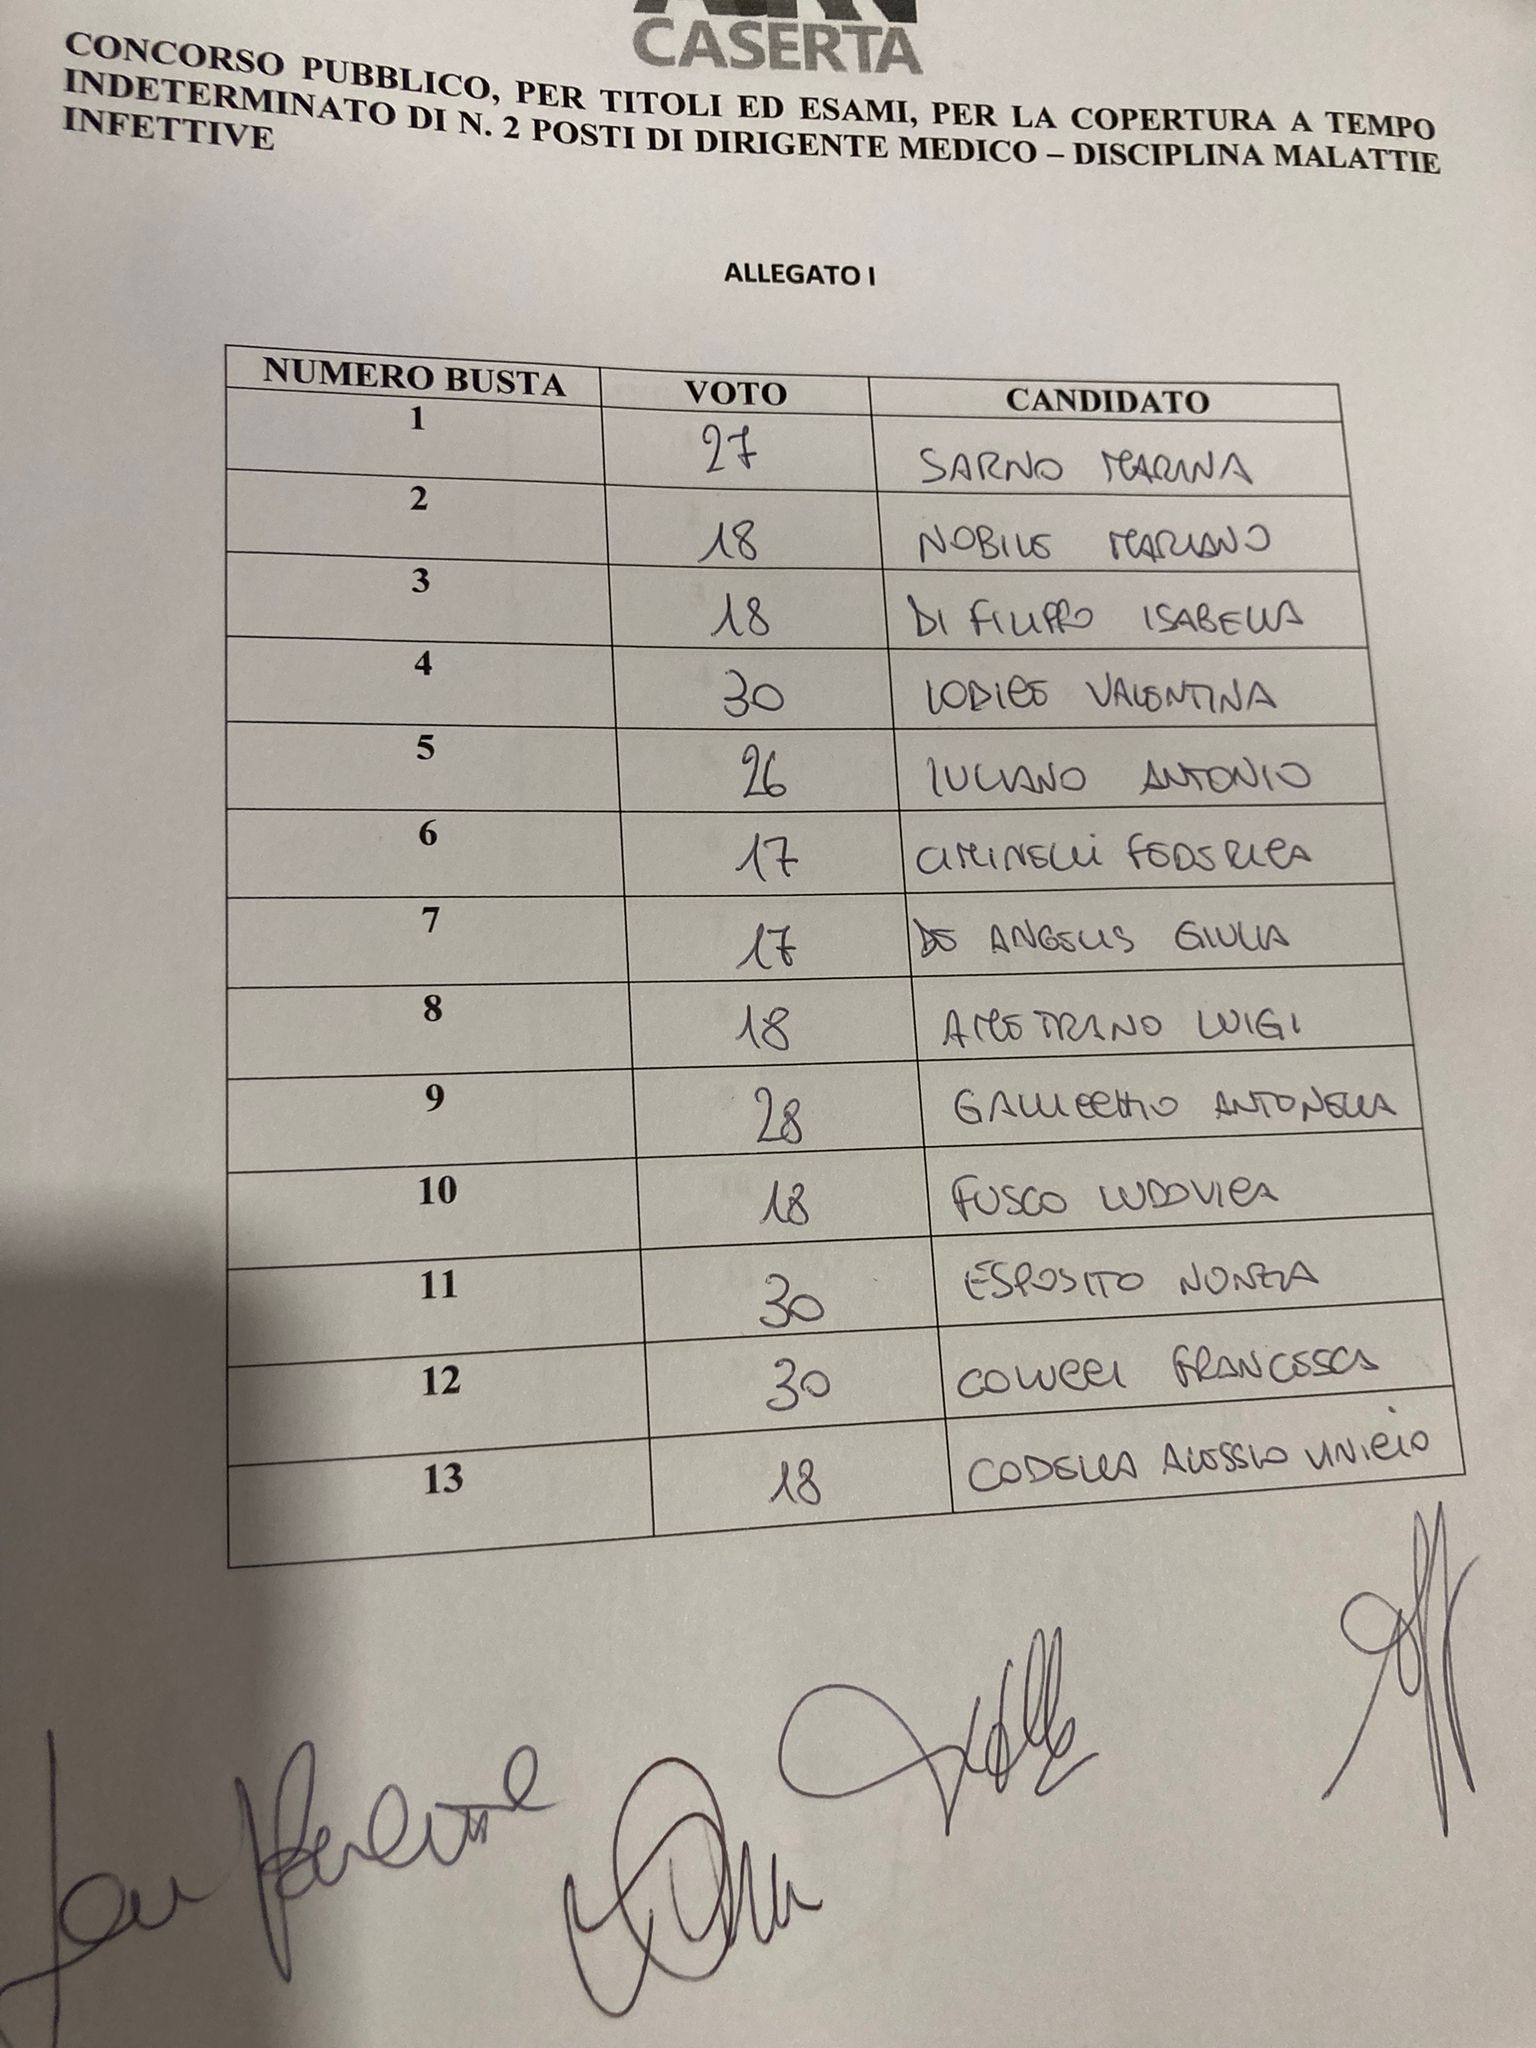 CASERTA
CONCORSO PUBBLICO, PER TITOLI ED ESAMI, PER LA COPERTURA A TEMPO
INDETERMINATO DI N. 2 POSTI DI DIRIGENTE MEDICO – DISCIPLINA MALATTIE
INFETTIVE
ALLEGATO I
NUMERO BUSTA VOTO CANDIDATO
1 27 SARNO MARINA
2 18 NOBILE MARIANO
3 18 DI FILIPPO ISABELLA
4 30 IODICE VALENTINA
5 26 IULIANO ANTONIO
6 17 CIMINELLI FEDERICA
7 17 DE ANGELIS GIULIA
8 18 AMETRANO LUIGI
9 28 GALLICCHIO ANTONELLA
10 18 FUSCO LUDOVICA
11 30 ESPOSITO NUNZIA
12 30 COLUCCI FRANCESCA
13 18 CODELLA ALESSIO VINICIO